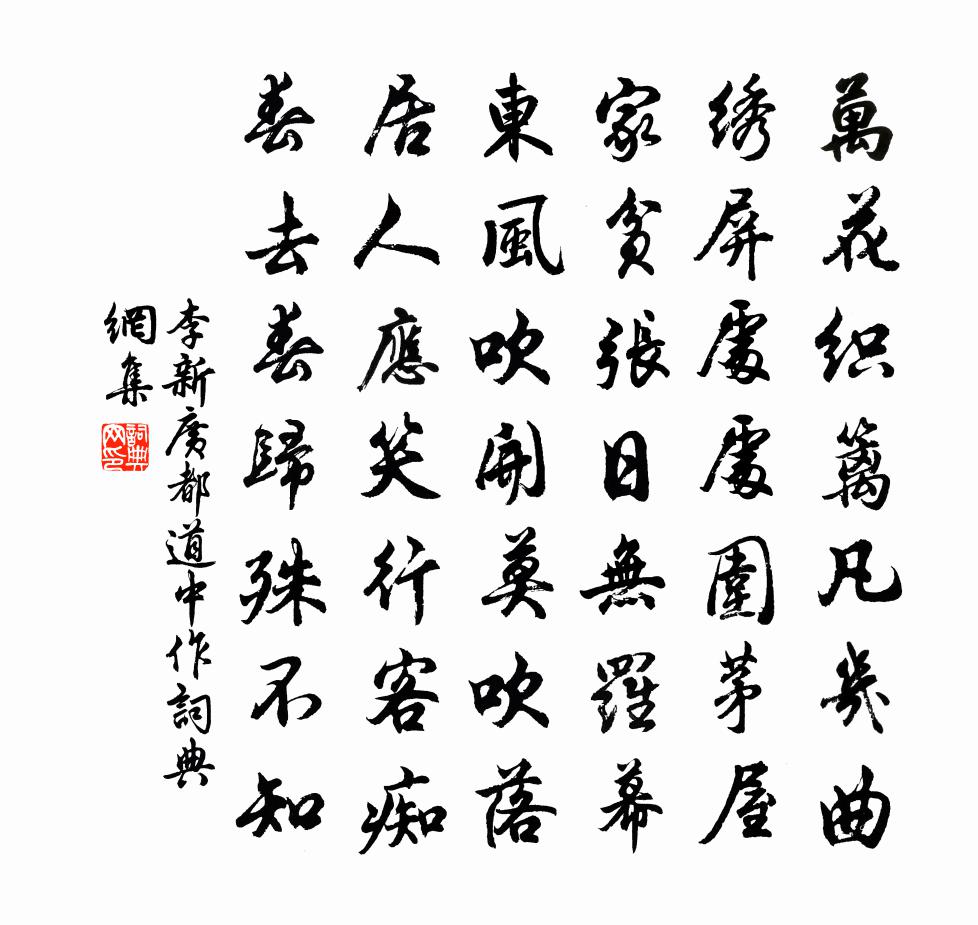 萬花织篱凡幾曲
绣屏處處圍茅屋
家貧張日無羅幕
東風吹開莫吹落
居人應笑行客痴
春去春歸殊不知
李新廣都道中作詞典
網集
詞典網印